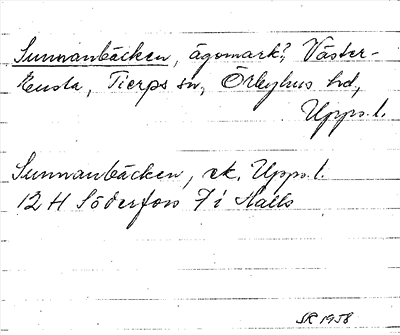 Sunnanbäcken, ägomark?, Väster-
Ensta, Tierps sn, Örbyhus hd,
Upps. l.
Sunnanbäcken, ek. Upps. l.
12 H Söderfors 7 i Nalls
SR 1958